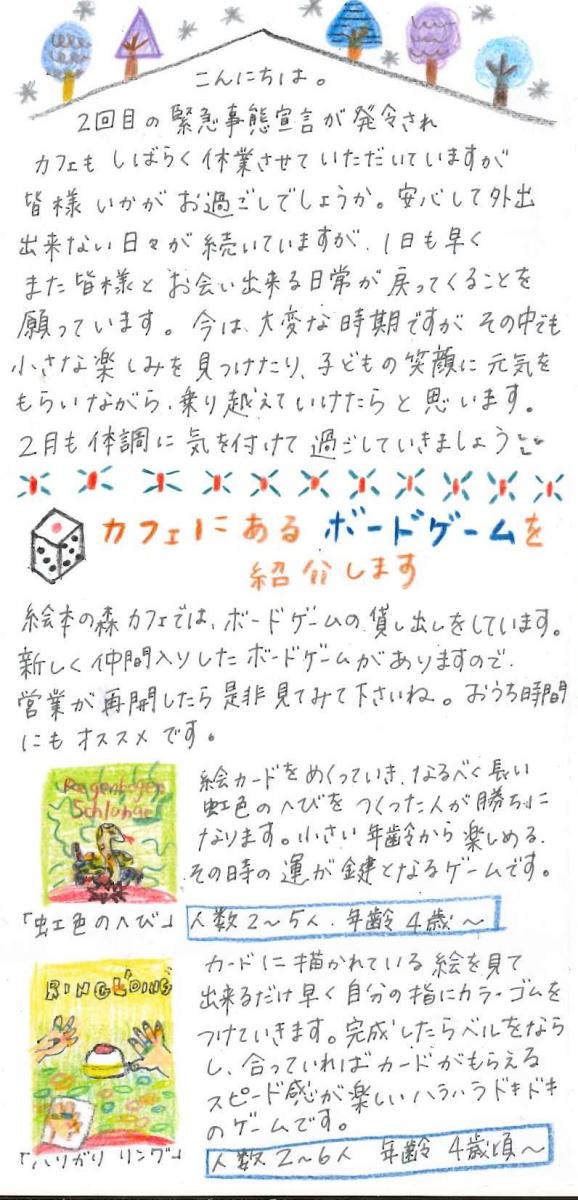 こんにちは。
2回目の緊急事態宣言が発令され
カフェもしばらく休業させていただいていますが
皆様いかがお過ごしでしょうか。安心して外出
出来ない日々が続いていますが、1日も早く
また皆様とお会い出来る日常が戻ってくることを
願っています。今は、大変な時期ですがその中でも
小さな楽しみを見つけたり、子どもの笑顔に元気を
もらいながら、乗り越えていけたらと思います。
2月も体調に気を付けて過ごしていきましょう
カフェにあるボードゲームを
紹介します
絵本の森カフェでは、ボードゲームの貸し出しをしています。
新しく仲間入りしたボードゲームがありますので、
営業が再開したら是非見てみて下さいね。おうち時間
にもオススメです。
Regenbogen
Schlange
絵カードをめくっていき、なるべく長い
虹色のへびをつくった人が勝ちに
なります。小さい年齢から楽しめる、
その時の運が鍵となるゲームです。
「虹色のへび」
人数2〜5人、年齢4歳〜
RINGL DING
カードに描かれている絵を見て
出来るだけ早く自分の指にカラーゴムを
つけていきます。完成したらベルをなら
し、合っていればカードがもらえる
スピード感が楽しいハラハラドキドキ
のゲームです。
「ハリガリ リング」
人数2〜6人 年齢4歳頃〜